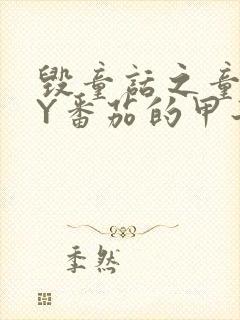 毁童话之童
Y番茄的甲
季然